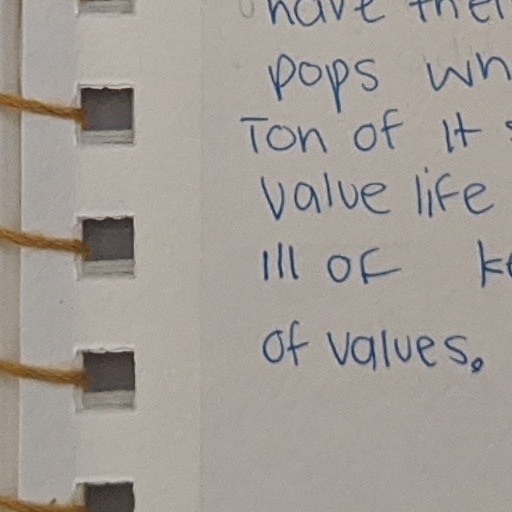 have their
pops wh
Ton of It s
value life
Ill of ke
of values.